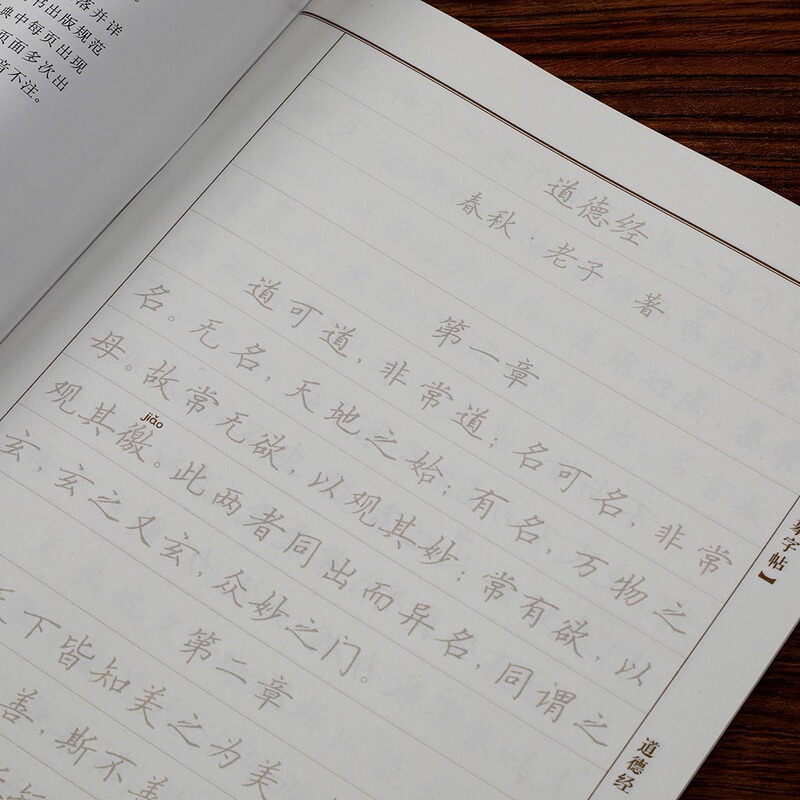 落并详
书出版规范
典中每页出现
页面多次出
音不注。
道德经
春秋·老子 著
第一章
道可道，非常道；名可名，非常
名。无名，天地之始；有名，万物之
母。故常无欲，以观其妙；常有欲，以
jiǎo
观其徼。此两者同出而异名，同谓之
玄，玄之又玄，众妙之门。
第二章
天下皆知美之为美
善，斯不善
字帖】
道德经